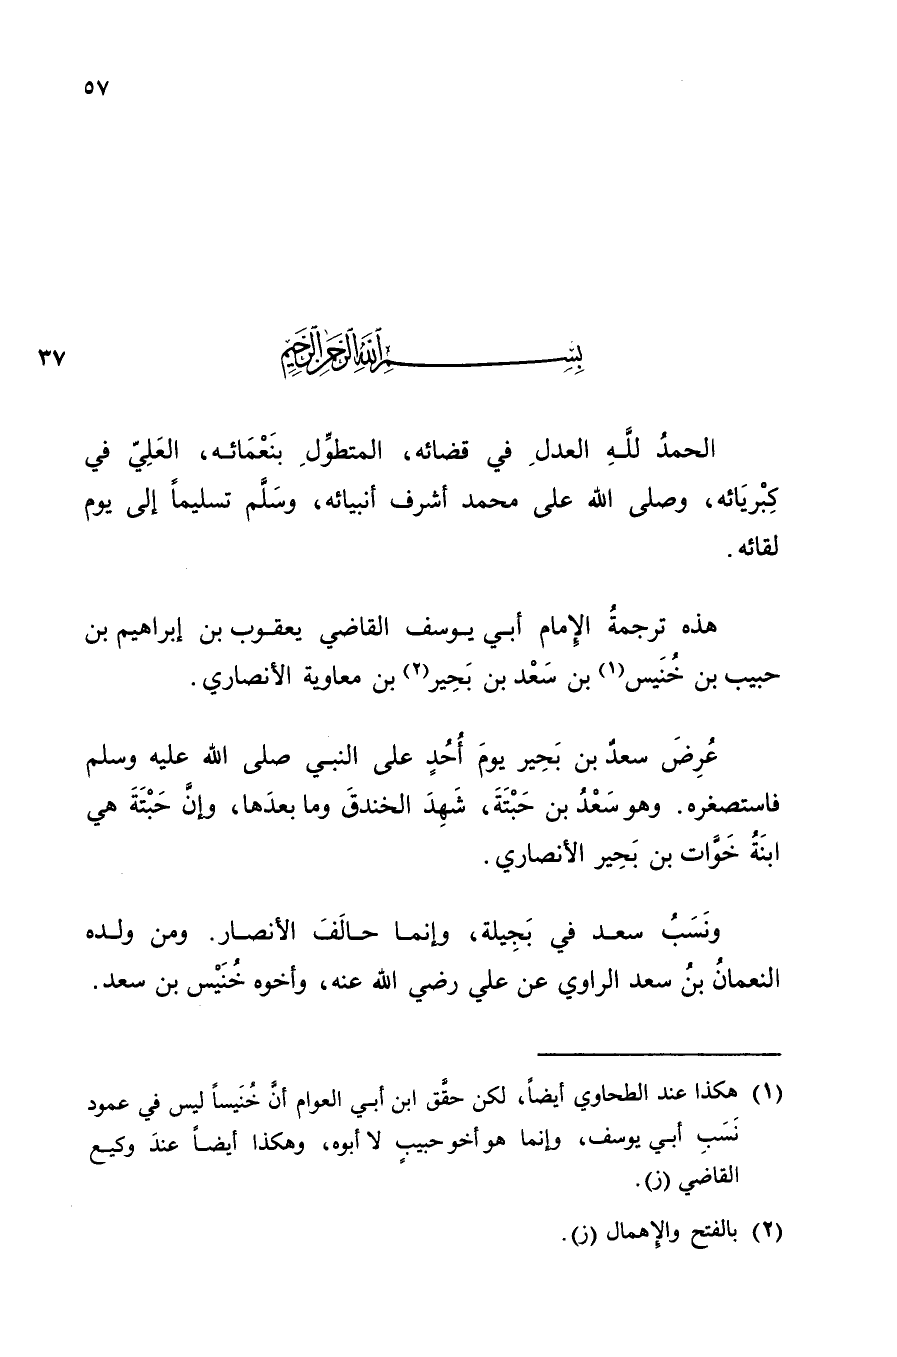 ٥٧
بِسْمِ اللَّهِ الرَّحْمَٰنِ الرَّحِيمِ
٣٧
الحمدُ للَّـهِ العدلِ في قضائه، المتطوِّلِ بنَعْمَائـه، العَلِيّ في
كِبْريَائه، وصلى الله على محمد أشرف أنبيائه، وسَلَّم تسليماً إلى يوم
لقائه.
هذه ترجمةُ الإمام أبـي يـوسف القاضي يعقـوب بن إبراهيم بن
حبيب بن خُنَيس(١) بن سَعْد بن بَحِير(٢) بن معاوية الأنصاري.
عُرِضَ سعدٌ بن بَحِير يومَ أُحُدٍ على النبـي صلى الله عليه وسلم
فاستصغره. وهو سَعْدُ بن حَبْتَةَ، شَهِدَ الخندقَ وما بعدَها، وإنَّ حَبْتَةَ هي
ابنَةُ خَوَّات بن بَحِير الأنصاري.
ونَسَبُ سعـد في بَجِيلة، وإنمـا حـالَفَ الأنصـار. ومن ولـده
النعمانُ بنُ سعد الراوي عن علي رضي الله عنه، وأخوه خُنَيْس بن سعد.
(١) هكذا عند الطحاوي أيضاً، لكن حقَّق ابن أبـي العوام أنَّ خُنَيساً ليس في عمود
نَسَبِ أبـي يوسف، وإنما هو أخو حبيبٍ لا أبوه، وهكذا أيضـاً عندَ وكيـع
القاضي (ز).
(٢) بالفتح والإهمال (ز).